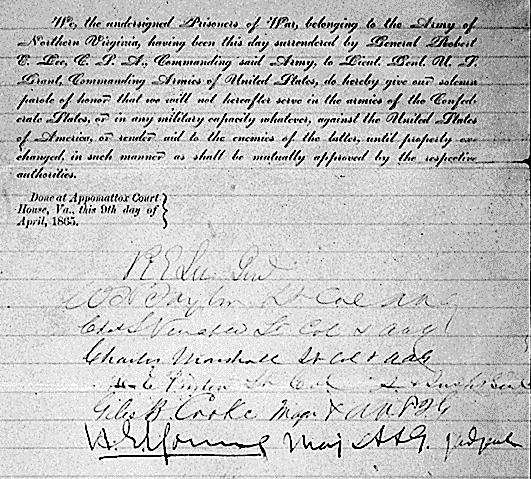 We, the undersigned Prisoners of War, belonging to the Army of
Northern Virginia, having been this day surrendered by General Robert
E. Lee, C. S. A., Commanding said Army, to Lieut. Genl. U. S.
Grant, Commanding Armies of United States, do hereby give our solemn
parole of honor that we will not hereafter serve in the armies of the Confed-
erate States, or in any military capacity whatever, against the United States
of America, or render aid to the enemies of the latter, until properly ex-
changed, in such manner as shall be mutually approved by the respective
authorities.
Done at Appomattox Court
House, Va., this 9th day of
April, 1865.
R E Lee Genl
W H Taylor Lt Col AAG
Chas S Venable Lt Col & AAG
Charles Marshall Lt Col & AAG
H E Peyton Lt Col & Insp Genl
Giles B Cooke Major & AA&IG
H. E. Young Maj AAG